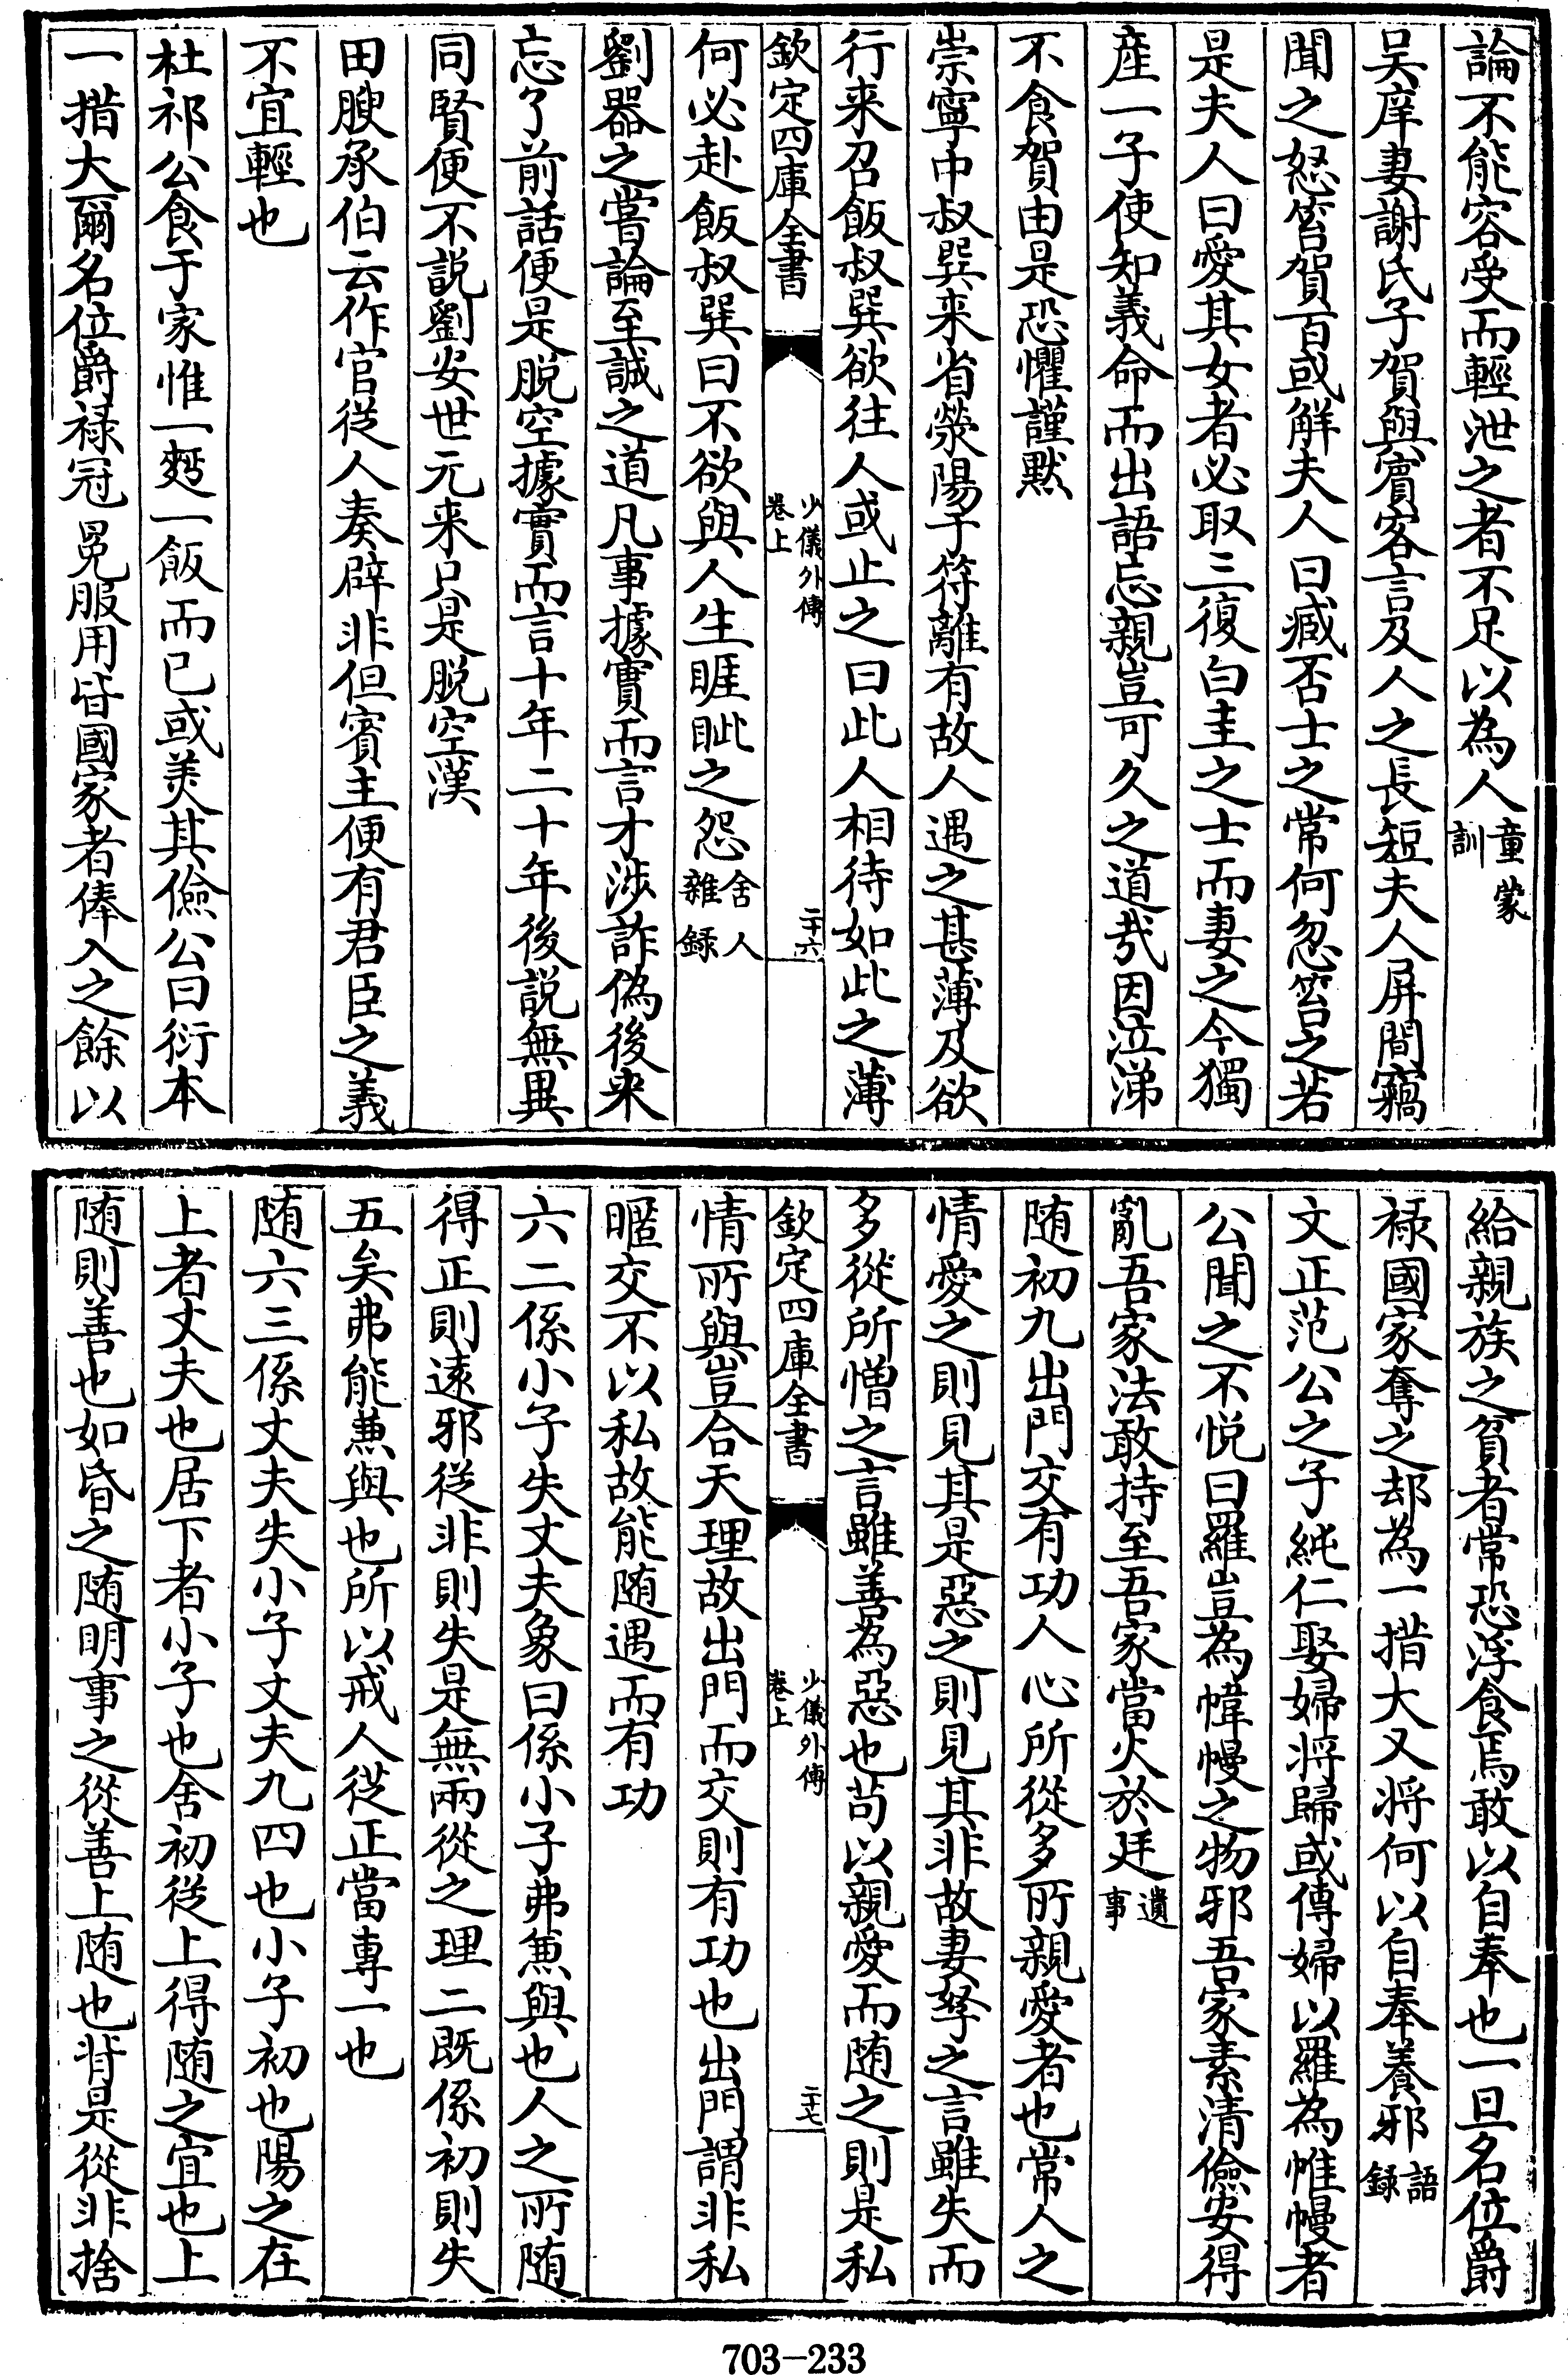 論不能容受而輕泄之者不足以為人童蒙訓
吴庠妻謝氏子賀與賓客言及人之長短夫人屏間竊
聞之怒笞賀百或解夫人曰臧否士之常何忽笞之若
是夫人曰愛其女者必取三復白圭之士而妻之今獨
産一子使知義命而出語忘親豈可久之道哉因泣涕
不食賀由是恐懼謹黙
崇寧中叔巽来省滎陽于符離有故人遇之甚薄及欲
行来召飯叔巽欲往人或止之曰此人相待如此之薄
欽定四庫全書 少儀外傳卷上 二十六
何必赴飯叔巽曰不欲與人生睚眦之怨舍人雜録
劉器之嘗論至誠之道凡事據實而言才涉詐偽後来
忘了前話便是脱空據實而言十年二十年後説無異
同賢便不説劉安世元来只是脱空漢
田腴承伯云作官從人奏辟非但賓主便有君臣之義
不宜輕也
杜祁公食于家惟一麪一飯而已或美其儉公曰衍本
一措大爾名位爵禄冠冕服用皆國家者俸入之餘以
給親族之貧者常恐浮食焉敢以自奉也一旦名位爵
禄國家奪之却為一措大又将何以自奉養邪語録
文正范公之子純仁娶婦将歸或傳婦以羅為帷幔者
公聞之不悦曰羅豈為幃幔之物邪吾家素清儉安得
亂吾家法敢持至吾家當火於廷遺事
随初九出門交有功人心所從多所親愛者也常人之
情愛之則見其是惡之則見其非故妻孥之言雖失而
多從所憎之言雖善為惡也苟以親愛而随之則是私
欽定四庫全書 少儀外傳卷上 二十七
情所與豈合天理故出門而交則有功也出門謂非私
暱交不以私故能随遇而有功
六二係小子失丈夫象曰係小子弗兼與也人之所随
得正則逺邪從非則失是無兩從之理二既係初則失
五矣弗能兼與也所以戒人從正當專一也
随六三係丈夫失小子丈夫九四也小子初也陽之在
上者丈夫也居下者小子也舍初從上得随之宜也上
随則善也如昏之随明事之從善上随也背是從非捨
703-233